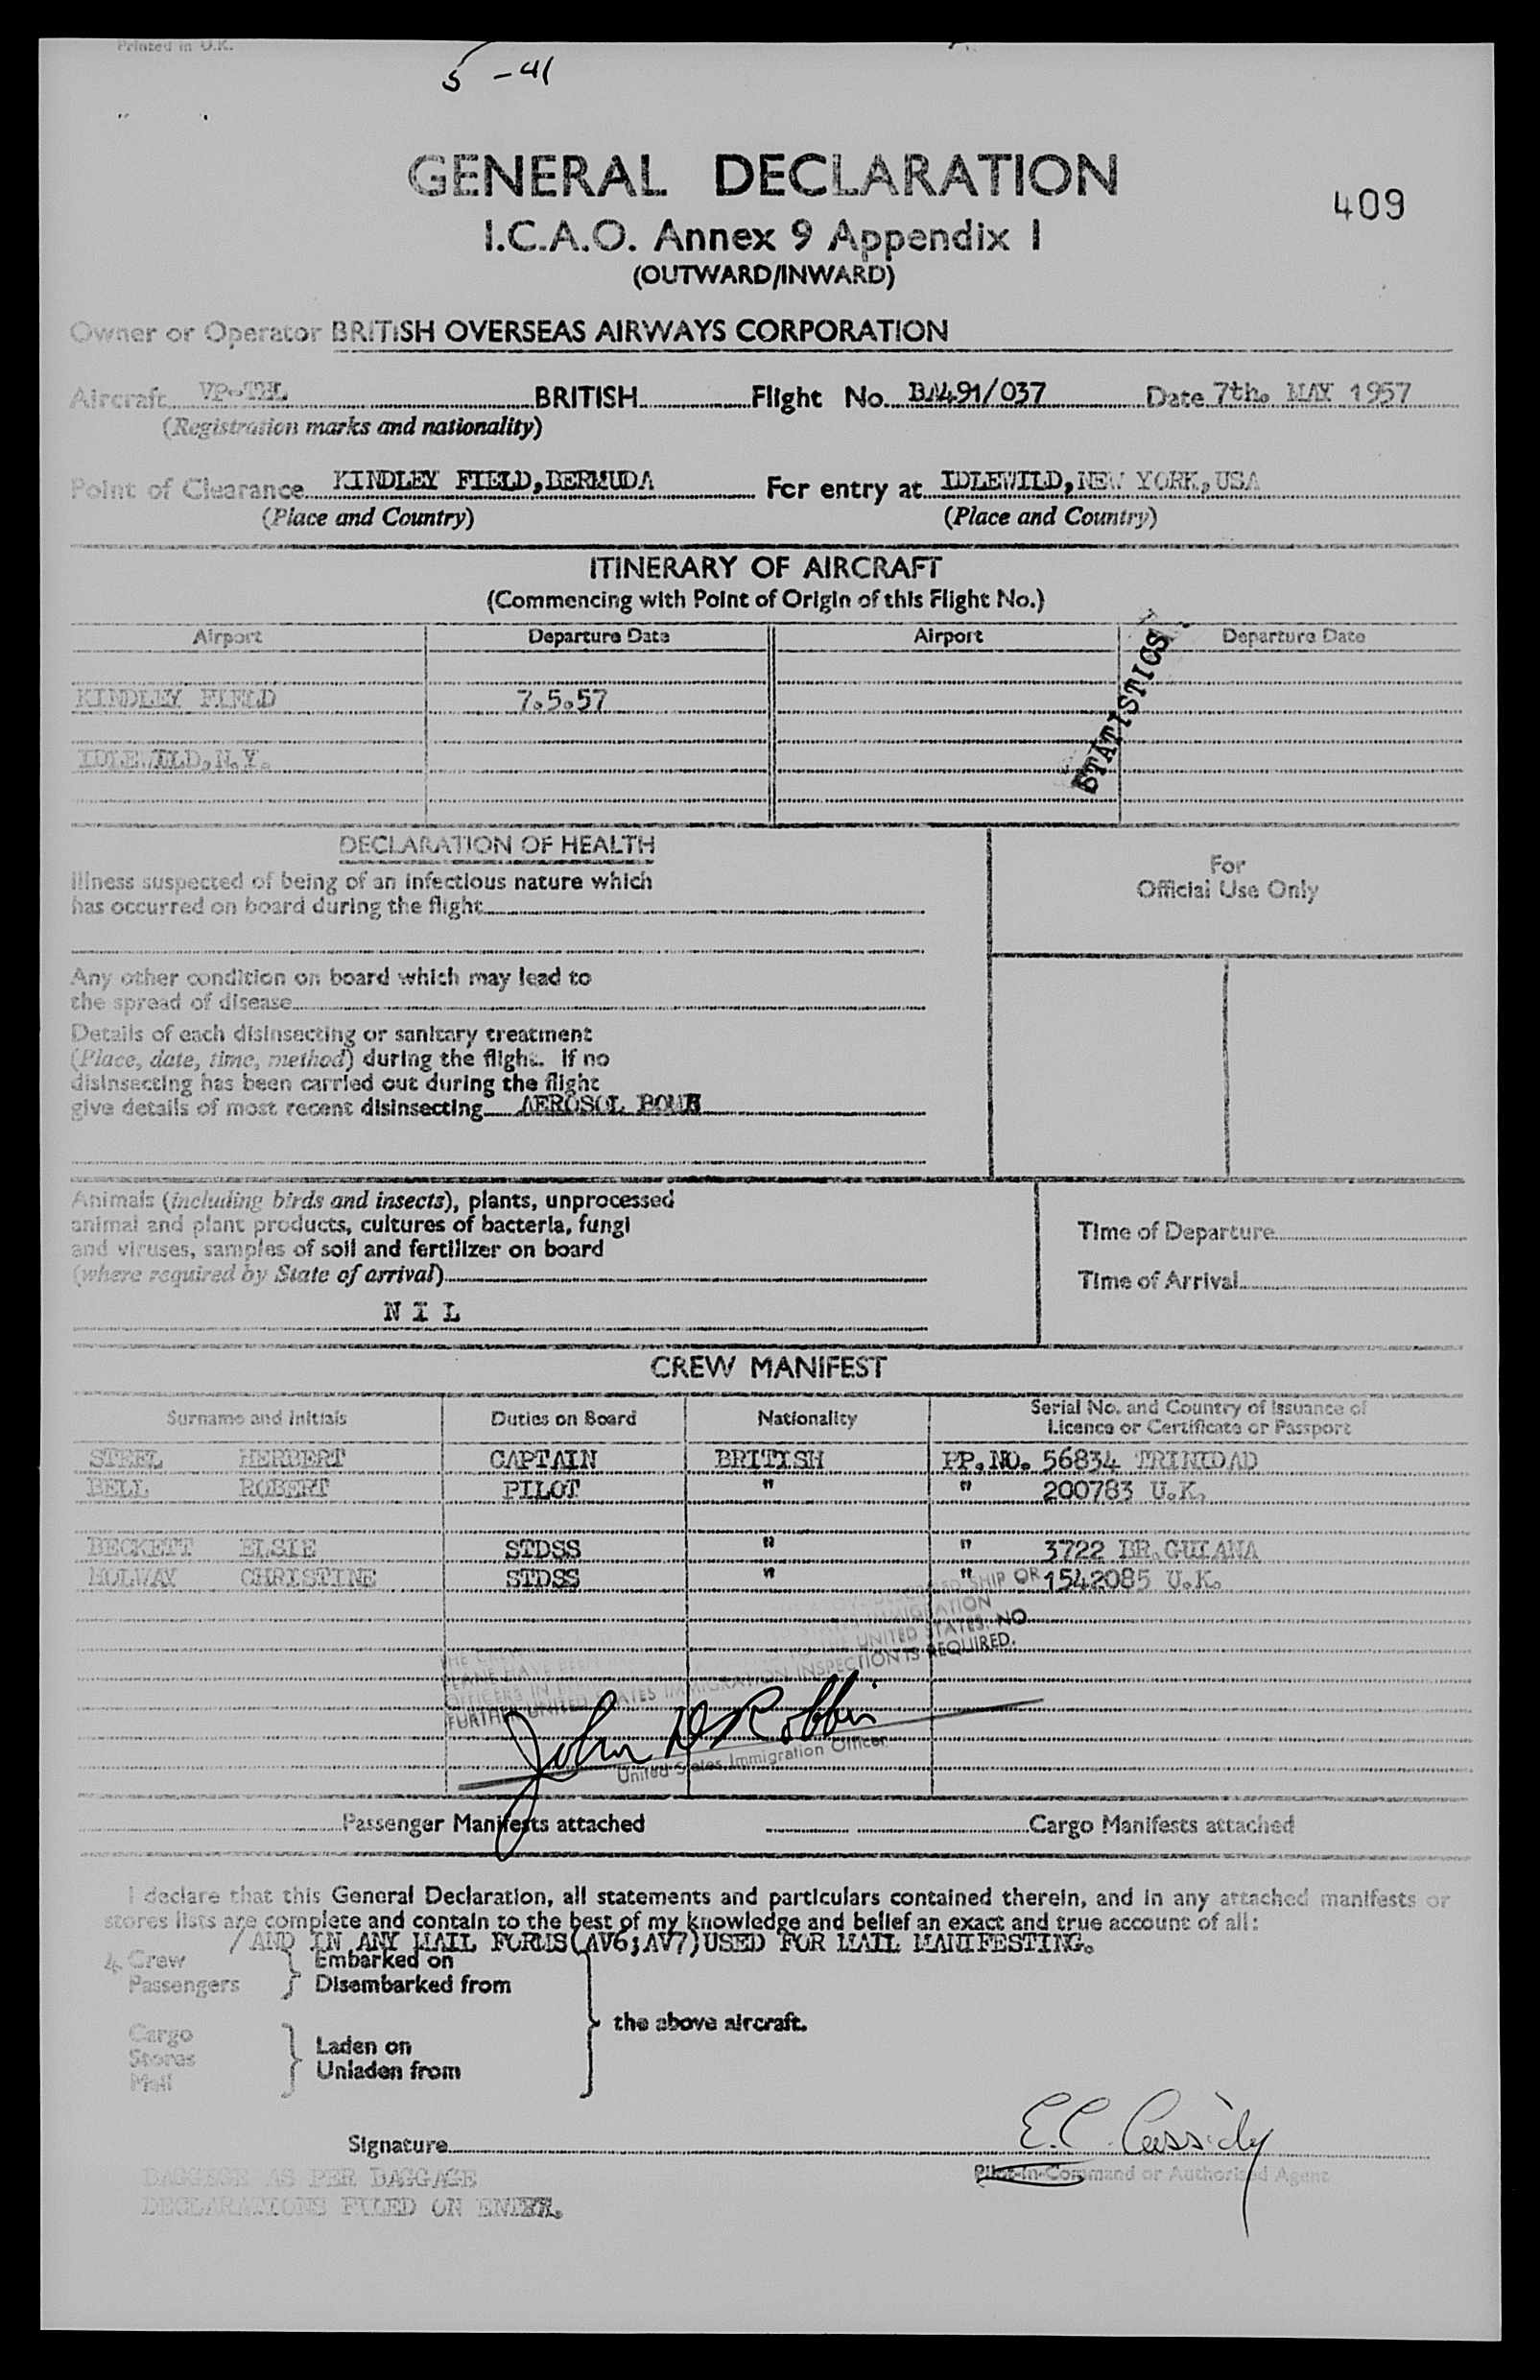 Printed in U.K.
5 - 41
GENERAL DECLARATION
409
I.C.A.O. Annex 9 Appendix I
(OUTWARD/INWARD)
Owner or Operator BRITISH OVERSEAS AIRWAYS CORPORATION
Aircraft VP-TBL BRITISH Flight No. BA491/037 Date 7th. MAY 1957
(Registration marks and nationality)
Point of Clearance KINDLEY FIELD, BERMUDA For entry at IDLEWILD, NEW YORK, USA
(Place and Country) (Place and Country)
ITINERARY OF AIRCRAFT
(Commencing with Point of Origin of this Flight No.)
Airport Departure Date Airport Departure Date
STATISTICS
KINDLEY FIELD 7.5.57
IDLEWILD, N.Y.
DECLARATION OF HEALTH
Illness suspected of being of an infectious nature which
has occurred on board during the flight
For
Official Use Only
Any other condition on board which may lead to
the spread of disease
Details of each disinsecting or sanitary treatment
(Place, date, time, method) during the flight. If no
disinsecting has been carried out during the flight
give details of most recent disinsecting AEROSOL BOMB
Animals (including birds and insects), plants, unprocessed
animal and plant products, cultures of bacteria, fungi
and viruses, samples of soil and fertilizer on board
(where required by State of arrival)
N I L
Time of Departure
Time of Arrival
CREW MANIFEST
Surname and Initials Duties on Board Nationality Serial No. and Country of Issuance of Licence or Certificate or Passport
STEEL HERBERT CAPTAIN BRITISH PP.NO. 56834 TRINIDAD
BELL ROBERT PILOT " " 200783 U.K.
BECKETT ELSIE STDSS " " 3722 BR.GUIANA
HOLWAY CHRISTINE STDSS " " 1542085 U.K.
SHIP OR
IMMIGRATION
UNITED STATES. NO
FURTHER UNITED STATES IMMIGRATION INSPECTION IS REQUIRED.
John D Robbin
United States Immigration Officer
Passenger Manifests attached Cargo Manifests attached
I declare that this General Declaration, all statements and particulars contained therein, and in any attached manifests or
stores lists are complete and contain to the best of my knowledge and belief an exact and true account of all:
/AND IN ANY MAIL FORMS(AV6;AV7)USED FOR MAIL MANIFESTING.
4 Crew } Embarked on
Passengers } Disembarked from
} the above aircraft.
Cargo
Stores } Laden on
Mail } Unladen from
Signature E.C. Cassidy
Pilot-in-Command or Authorised Agent
BAGGAGE AS PER BAGGAGE
DECLARATIONS FILED ON ENTRY.